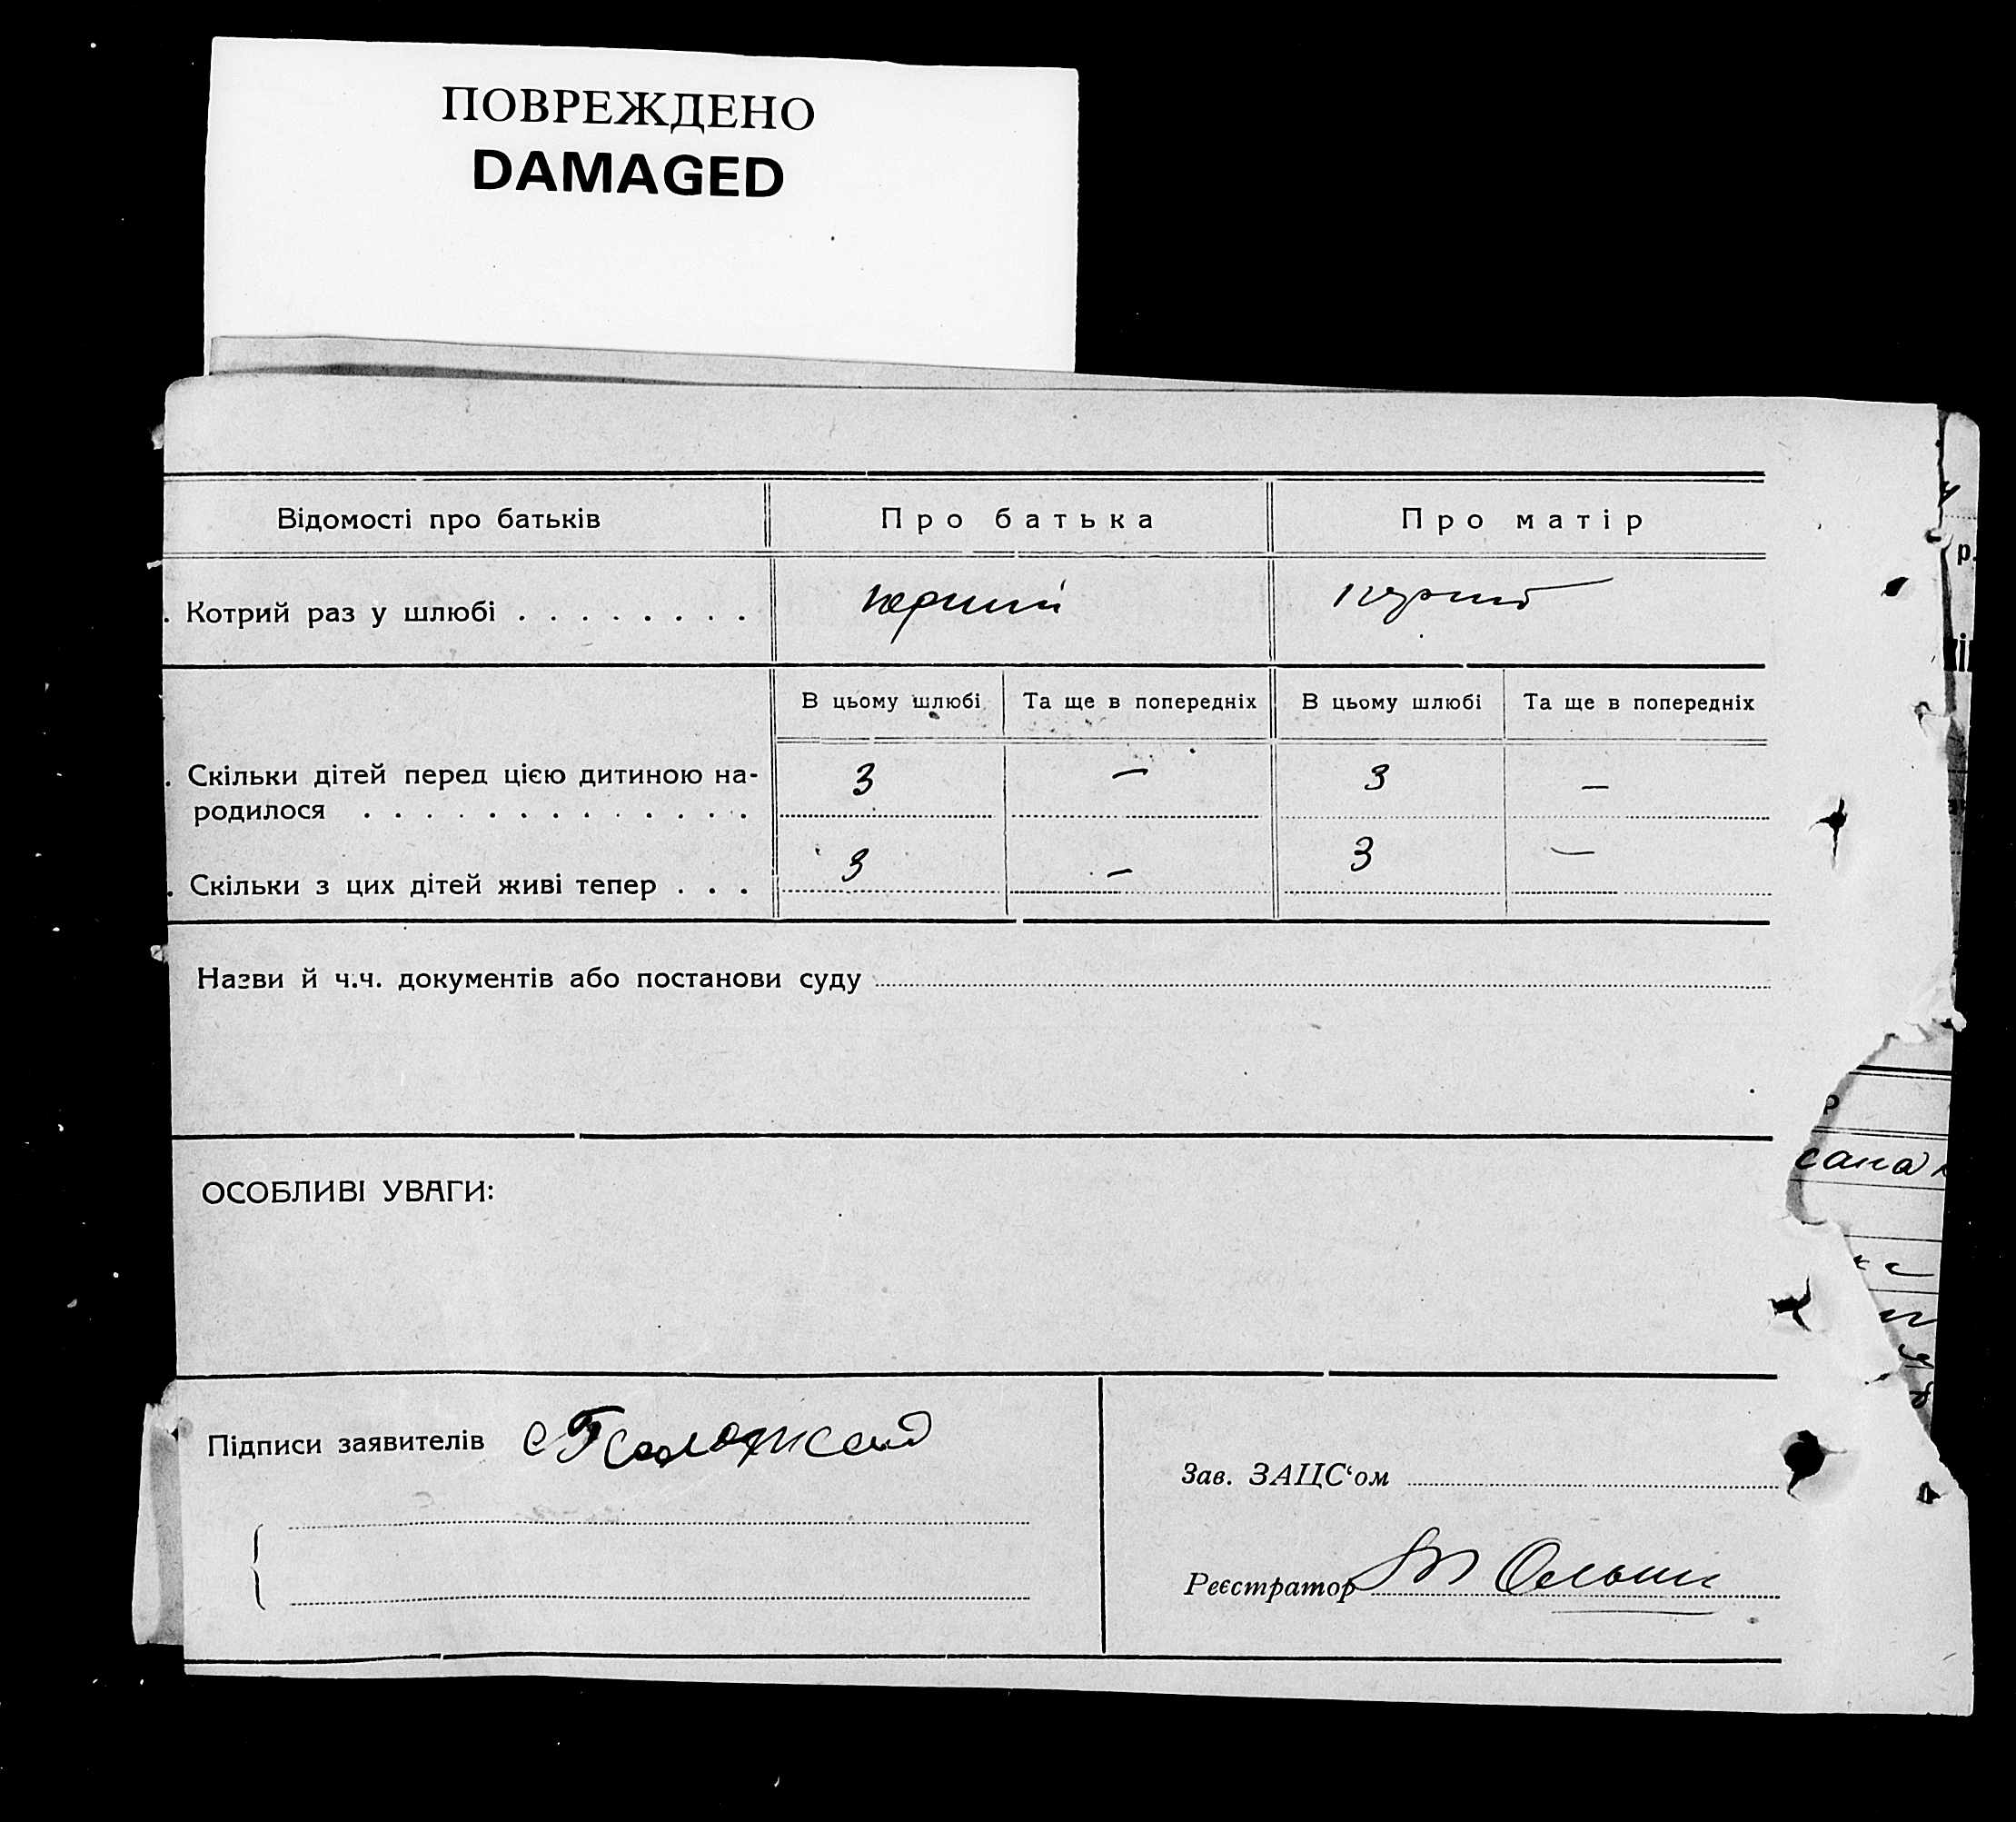 ПОВРЕЖДЕНО
DAMAGED
Відомості про батьків Про батька Про матір
. Котрий раз у шлюбі . . . . . . . . перший перший
В цьому шлюбі Та ще в попередніх В цьому шлюбі Та ще в попередніх
. Скільки дітей перед цією дитиною на-
родилося . . . . . . . . . . . . . 3 — 3 —
. Скільки з цих дітей живі тепер . . . 3 — 3 —
Назви й ч.ч. документів або постанови суду
ОСОБЛИВІ УВАГИ:
Підписи заявителів
Зав. ЗАЦС‘ом
Реєстратор